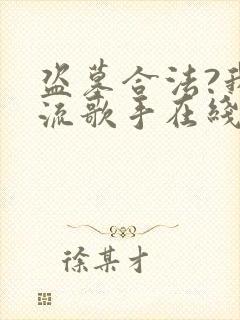 盗墓合法?我
流歌手在线
徐某才